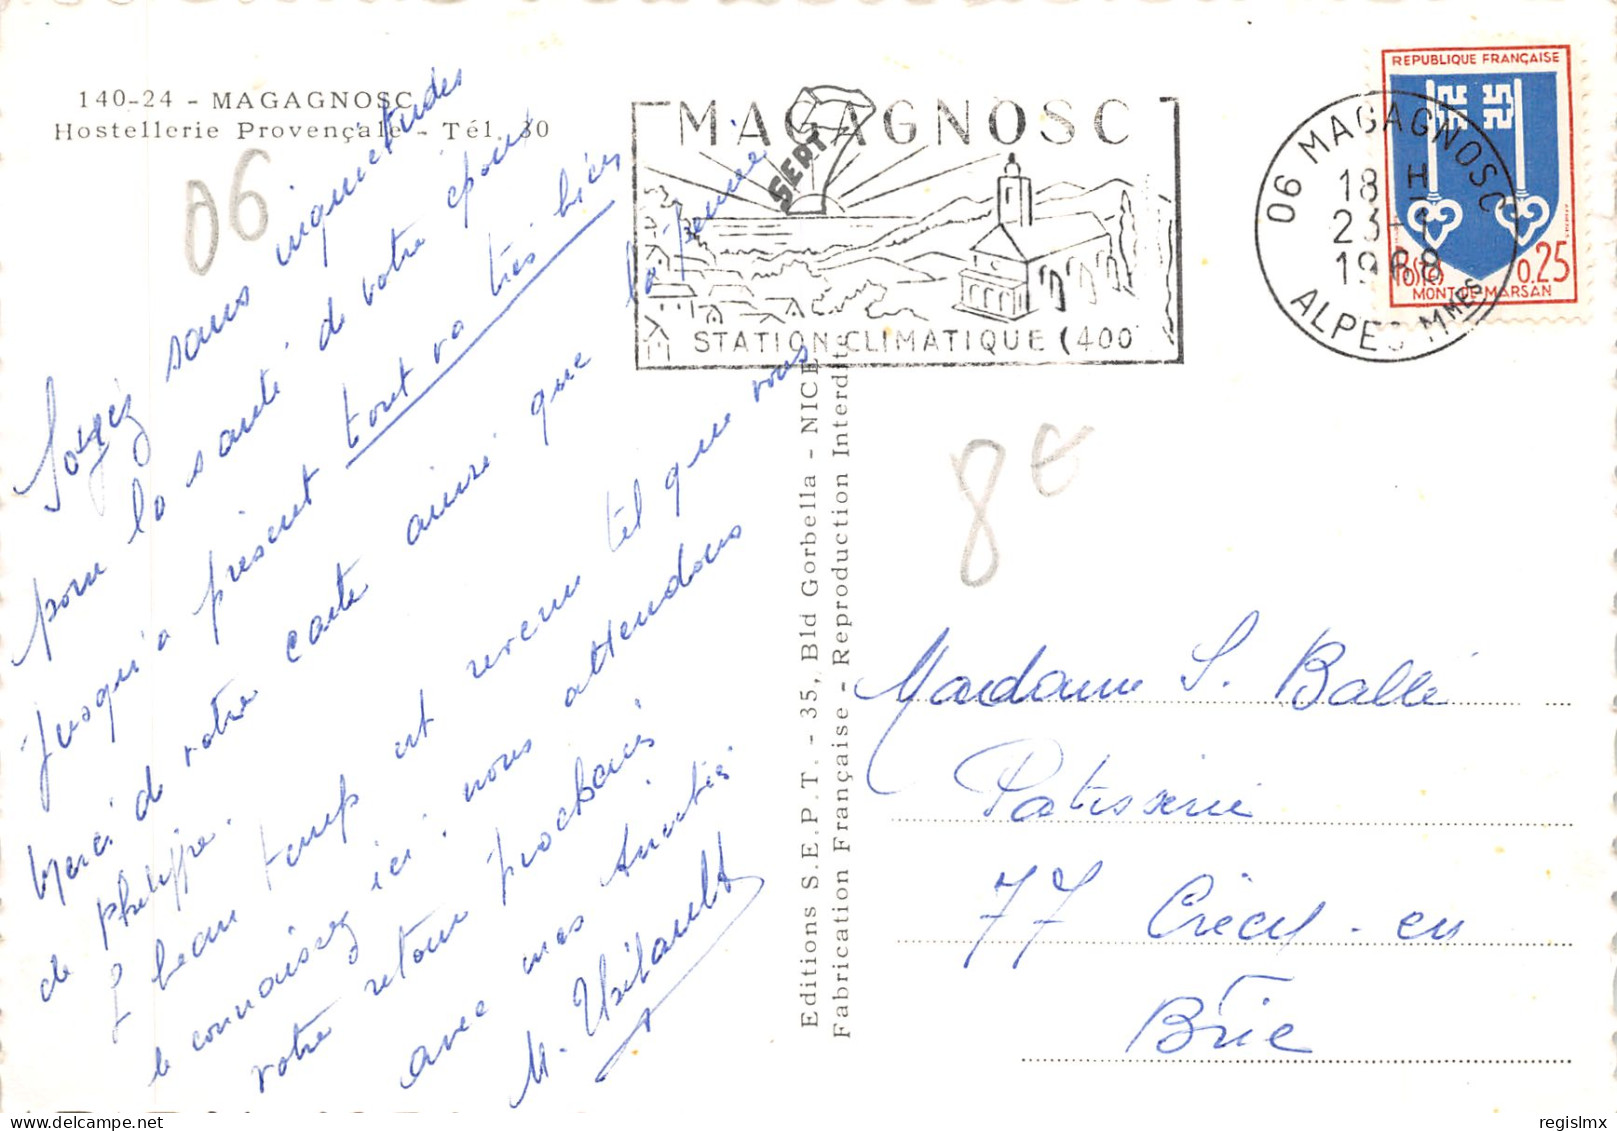 140-24 - MAGAGNOSC
Hostellerie Provençale - Tél. 30
06
Soyez sans inquiétudes
pour la santé de votre époux
jusqu'à présent tout va très bien
Merci de votre carte ainsi que la pensée
de Philippe.
le beau temps est revenu tel que vous
le connaissez ici. nous attendons
votre retour prochain
avec mes Amitiés
M. Thibault
MAGAGNOSC
SEPT
STATION CLIMATIQUE (400
06 MAGAGNOSC
18 H
23-
1968
ALPES Mmes
REPUBLIQUE FRANÇAISE
Postes
0.25
MONT-DE-MARSAN
8€
Editions S.E.P.T. - 35, Bld Gorbella - NICE
Fabrication Française - Reproduction Interdite
Madame S. Ballé
Patisserie
77 Crécy-en
Brie
regislmx